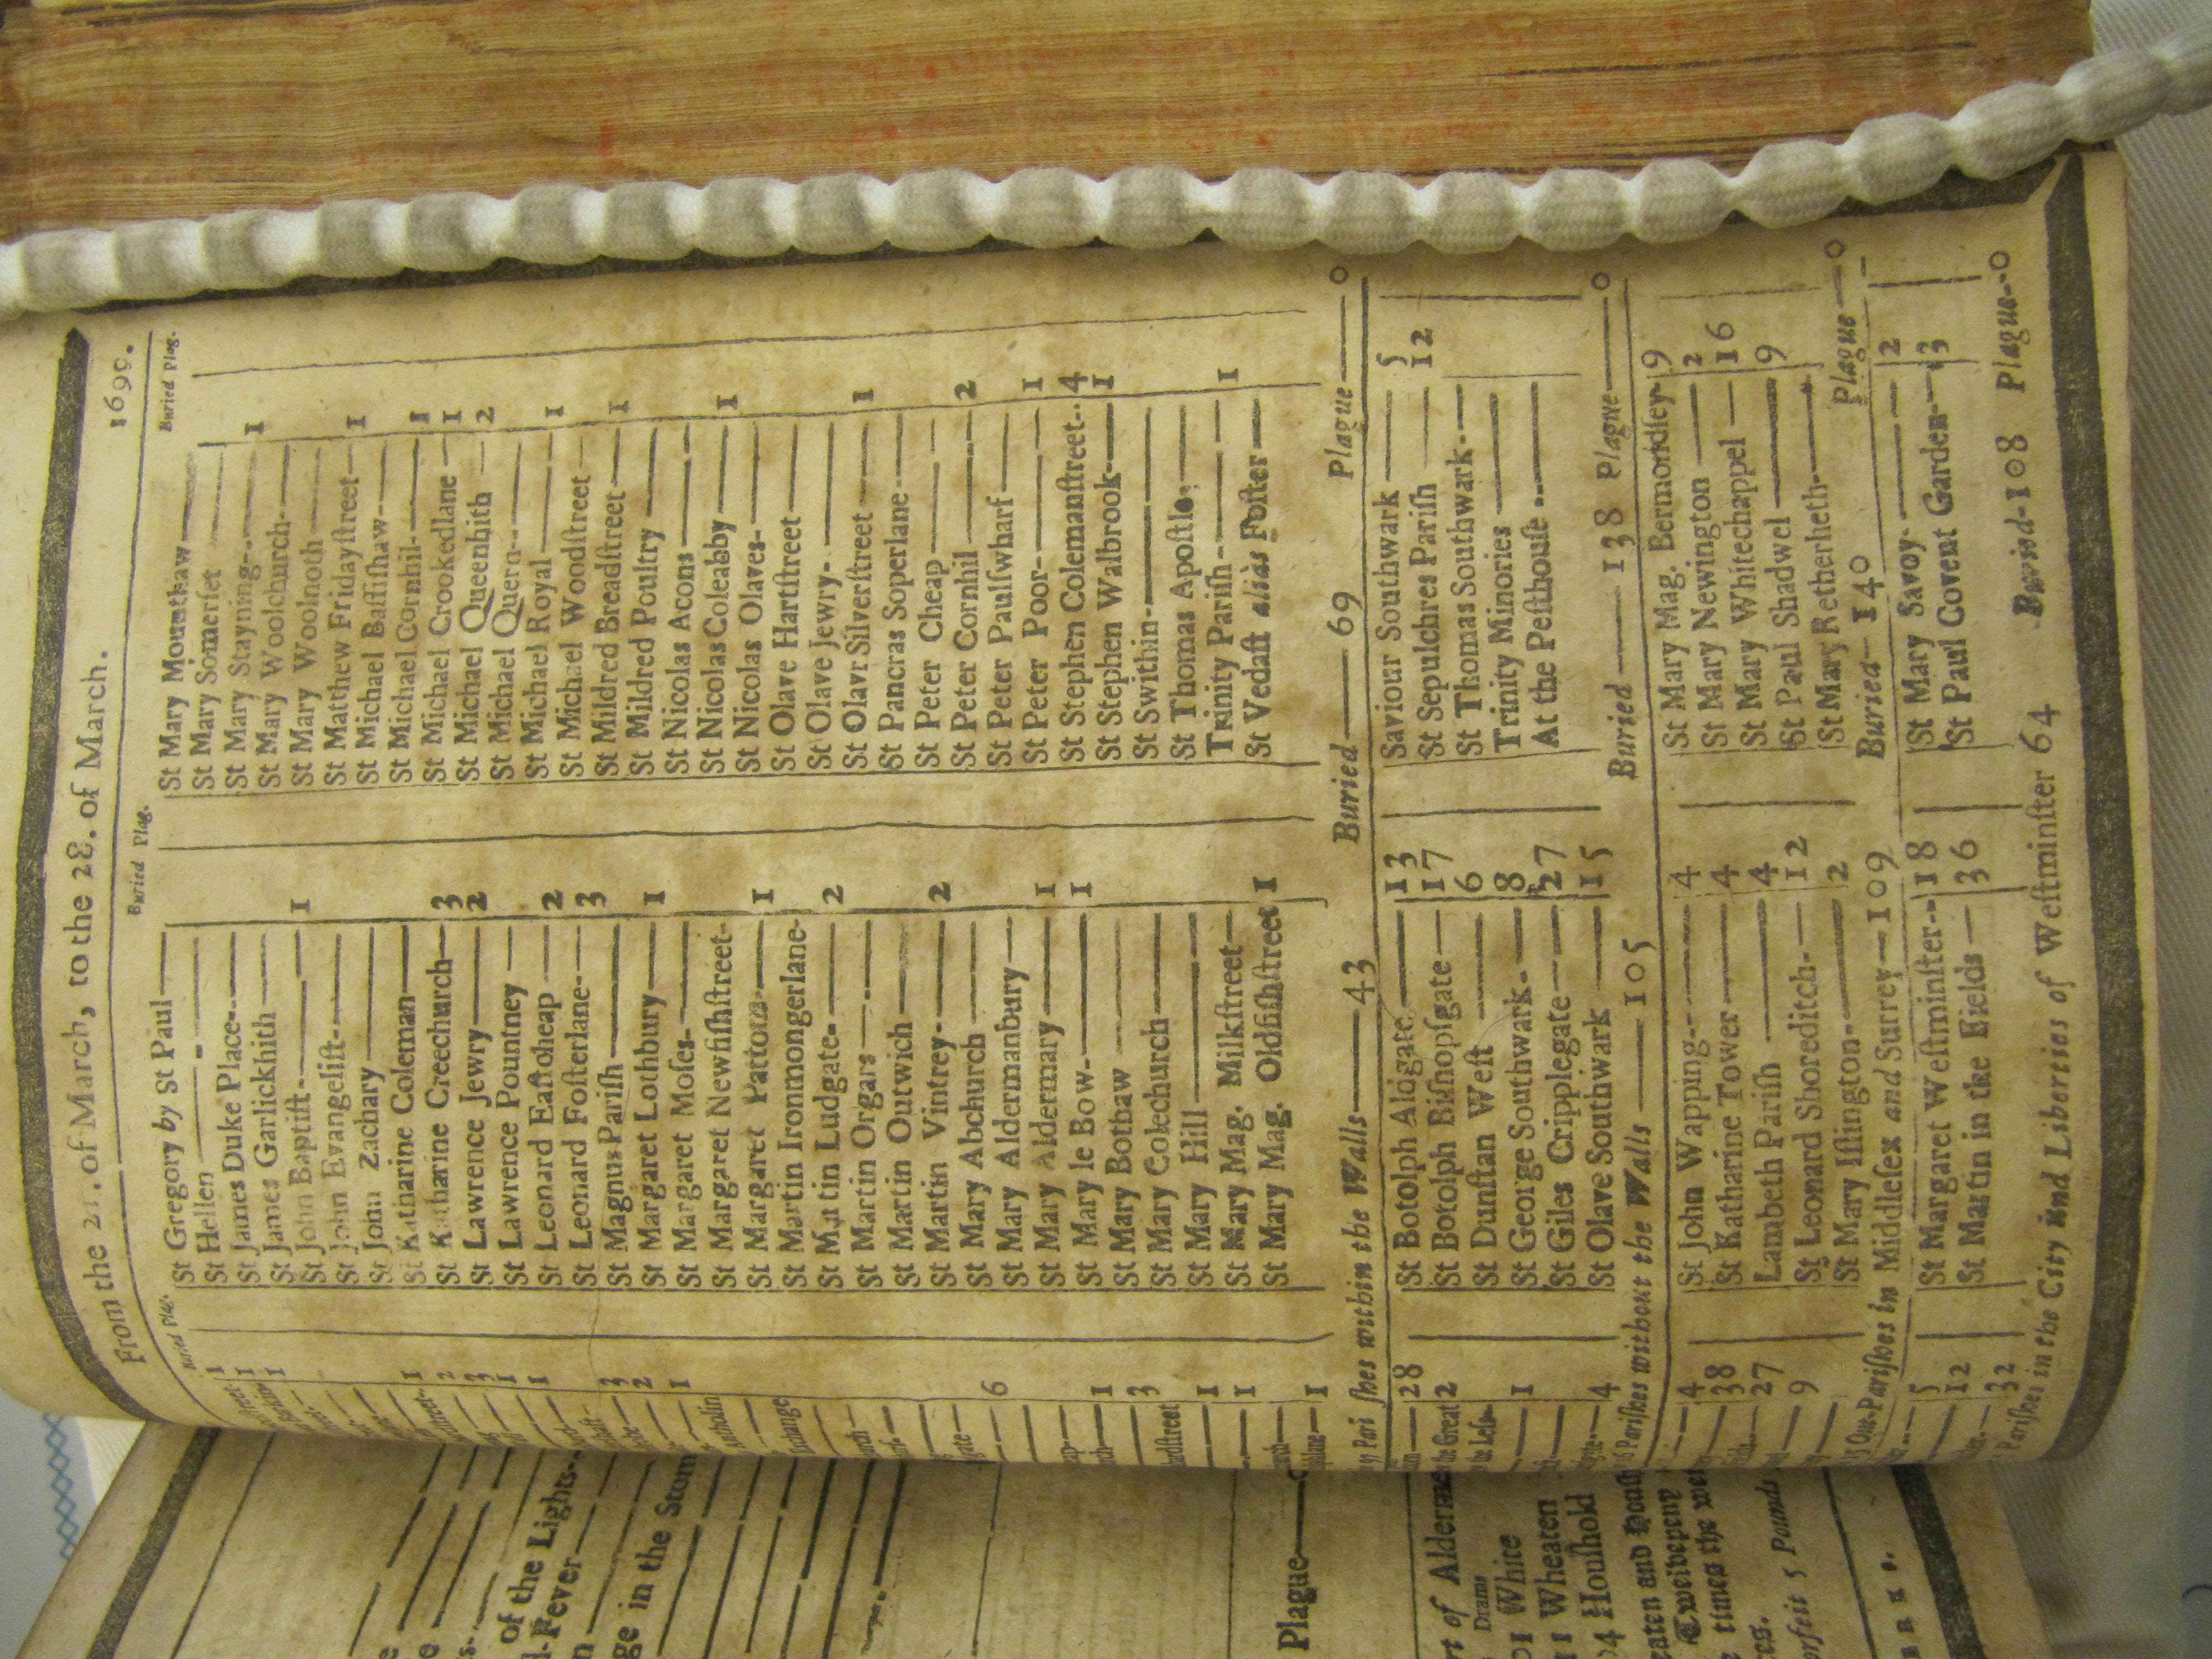 From the 21. of March, to the 28. of March. 1699.
Buried Plag.
1
1
1
1
2
3
1
1
3
2
1
6
1
3
1
1
1
Buried Plag.
St Gregory by St Paul
St Hellen
St James Duke Place
St James Garlickhith
St John Baptist 1
St John Evangelist
St John Zachary
St Katharine Coleman
St Katharine Creechurch 3
St Lawrence Jewry 2
St Lawrence Pountney
St Leonard Eastcheap 2
St Leonard Fosterlane 3
St Magnus Parish
St Margaret Lothbury 1
St Margaret Moses
St Margaret Newfishstreet
St Margaret Pattons 1
St Martin Ironmongerlane
St Martin Ludgate 2
St Martin Orgars
St Martin Outwich
St Martin Vintrey 2
St Mary Abchurch
St Mary Aldermanbury
St Mary Aldermary 1
St Mary le Bow 1
St Mary Bothaw
St Mary Colechurch
St Mary Hill
St Mary Mag. Milkstreet
St Mary Mag. Oldfishstreet 1
Buried Plag.
St Mary Mounthaw
St Mary Somerset
St Mary Stayning 1
St Mary Woolchurch
St Mary Woolnoth
St Matthew Fridaystreet 1
St Michael Bassishaw
St Michael Cornhil 1
St Michael Crookedlane 1
St Michael Queenhith 2
St Michael Quern
St Michael Royal 1
St Michael Woodstreet
St Mildred Breadstreet 1
St Mildred Poultry
St Nicolas Acons
St Nicolas Coleabby 1
St Nicolas Olaves
St Olave Hartstreet
St Olave Jewry
St Olavr Silverstreet 1
St Pancras Soperlane
St Peter Cheap
St Peter Cornhil 2
St Peter Paulswharf
St Peter Poor 1
St Stephen Colemanstreet 4
St Stephen Walbrook 1
St Swithin
St Thomas Apostle
Trinity Parish 1
St Vedast aliàs Foster
Parishes within the Walls 43 Buried 69 Plague 0
28
the Great 2
the Less
1
4
St Botolph Aldgate 13
St Botolph Bishopsgate 17
St Dunstan West 6
St George Southwark 8
St Giles Cripplegate 27
St Olave Southwark 15
Saviour Southwark 5
St Sepulchres Parish 12
St Thomas Southwark
Trinity Minories
At the Pesthouse
Parishes without the Walls 105 Buried 138 Plague 0
4
38
27
9
St John Wapping 4
St Katharine Tower 4
Lambeth Parish 4
St Leonard Shoreditch 12
St Mary Islington 2
St Mary Mag. Bermondsey 9
St Mary Newington 2
St Mary Whitechappel 16
St Paul Shadwel 9
St Mary Retherheth
Out-Parishes in Middlesex and Surrey 109 Buried 140 Plague 0
5
12
32
St Margaret Westminster 18
St Martin in the Fields 36
St Mary Savoy 2
St Paul Covent Garden 3
Parishes in the City and Liberties of Westminster 64 Buried 108 Plague 0
of the Lights
Fever
in the Stom
Plague
of Alderme
Drams
White
Wheaten
Houshold
times the
5 Pounds